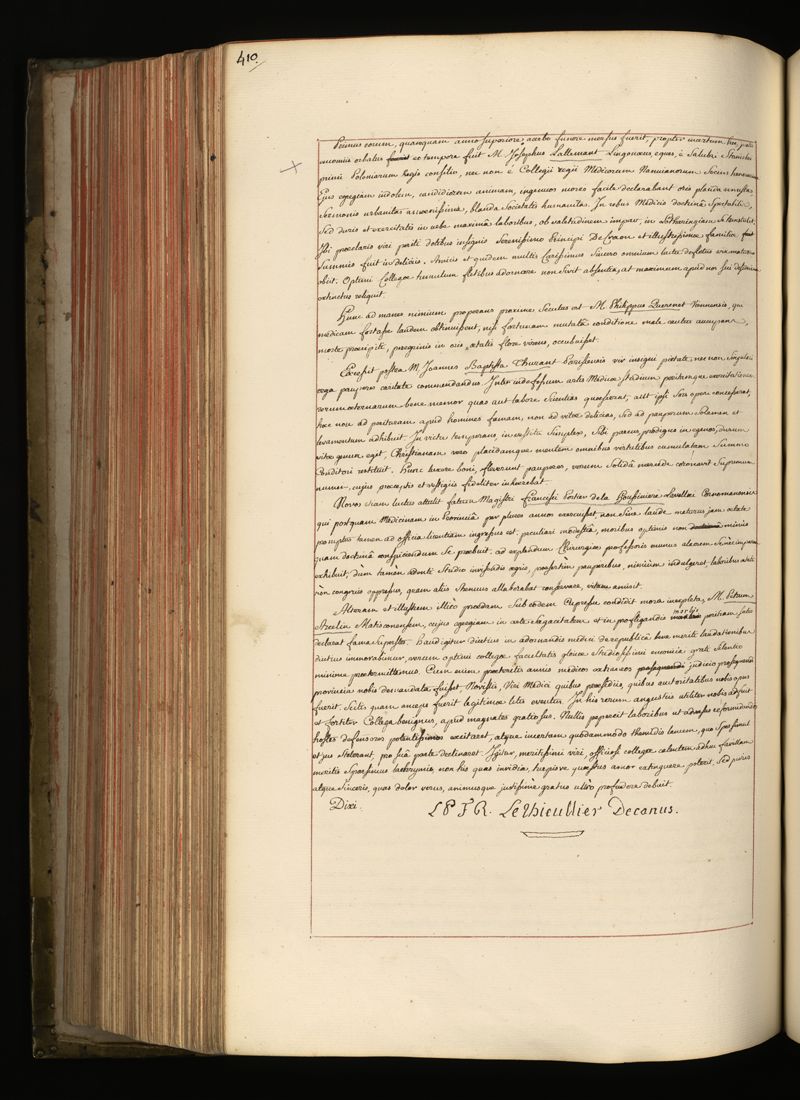 410.
Primus eorum, quanquam anno superiore acerbo funere mersus fuerit, propter
encomiis orbatus eo tempore fuit M. Josephus Lallemant Lingonæus, eques, è Saluberri Stanislai
primi Poloniarum Regis consilio, nec non è Collegii regii Medicorum Nanceianorum Socius honorarius.
Ejus egregiam indolem, candidiorem animam, ingenuos mores facile declarabant oris placida venustas
Sermonis urbanitas amoenissima, blanda Societatis humanitas. In rebus Medicis doctrinâ Spectabilis,
Sed duris et exercitatis in urbe maximâ laboribus, ob valetudinem impar, in Lotharingiam Se transtulit.
Ibi præclaris viri paribus dotibus insignis Serenissimo Principi De Craon et illustrissimæ familiæ
Summis fuit in deliciis. Amicis et quidem multis Carissimus Suis omnium luctu defletus
obiit. Optimi Collegæ tumulum fletibus adornare non Sivit absentia, at maximum apud nos Sui desiderium
extinctus reliquit.
Hunc ad manes nimium properans proxime Secutus est M. Philippus Querenet Nannensis, qui
medicam fortasse laudem obtinuisset, nisi fortunam mutatâ conditione male cautus aucupans,
morte præcipiti, peregrinis in oris, ætatis flore virens, occubuisset.
Excessit postea M. Joannes Baptista Thurant Parisiensis vir insigni pietate, nec non Singulari
erga pauperes caritate commendandus. Inter indefessum artis Medicæ Studium
rerum æternarum bene memor quas aut labore Scientias quæsierat, aut ipsi Sors opes concesserat,
hæc non ad parituram apud homines famam, non ad vitæ delicias, Sed ad pauperum Solamen et
levamentum adhibuit. In victu temperans, in vestitu Simplex, Sibi parcus, prodigus in egenos, durum
vitæ genus egit, Christianam vero placidamque mentem omnibus virtutibus cumulatam Summo
Conditori restituit. Hunc luxere boni, fleverunt pauperes, verum Solidâ mercede coronavit Supremum
numen, cujus præceptis et vestigiis fideliter inhæserat.
Novos etiam luctus attulit fatum Magistri Francisci Portier de la Houssiniere Lavallæi Cenomanensis
qui postquam Medicinam in Provinciâ per plures annos exercuisset non Sine laude maturus jam ætate
promptus tamen ad officia licentiam ingressus est. peculiari modestiâ, moribus optimis non minus
quam doctrinâ conspiciendum Se præbuit. ad explendum Chirurgiæ professoris munus alacrem Se nec imparem
exhibuit, dum tamen ardenti Studio invisendis ægris, præsertim pauperibus, nimium indulgeret laboribus
non congruis oppressus, quam aliis Strenuus allaborabat conservare, vitam amisit.
Alteram et illustrem illico prædam Sub eodem Cupressu condidit mors inexpleta, M. Petrum
Azelin Matisconensem, cujus egregiam in arte Sagacitatem et in profligandis morbis peritiam Satis
declarat fama Superstes. Haud igitur diutius in adornandis medici de republicâ bene meriti laudationibus
diutius immorabimur, verum optimi collegæ facultatis gloriæ Studiosissimi encomia grati Silentio
minime prætermittemus. Cum enim præteritis annis medicos extraneos judicio
provincia nobis demandata fuisset. Novistis, Viri Medici quibus præsidiis, quibus autoritatibus nobis opus
fuerit. Scitis quam anceps fuerit legitimæ litis eventus. In his rerum angustiis utiliter nobis adfuit
et fortiter Collega benignus, apud magnates gratiosus. Nullis pepercit laboribus ut adversus reformidandos
hostes defensores potentissimos excitaret, atque incertam quodammodo Themidis lancem, quo Spes sinerat
et jus Steterant, pro Suâ parte declinaret. Igitur, meritissimi viri, officiosi collegæ calentem adhuc favillam
meritis Sparsimus lacrymis, non his quas invidia, turpisve quæstus amor extinguere poterit, Sed puris
atque Sinceris, quas dolor verus, animusque justissime gratus ultro profundere debuit.
Dixi. L P F R. LeThieullier Decanus.